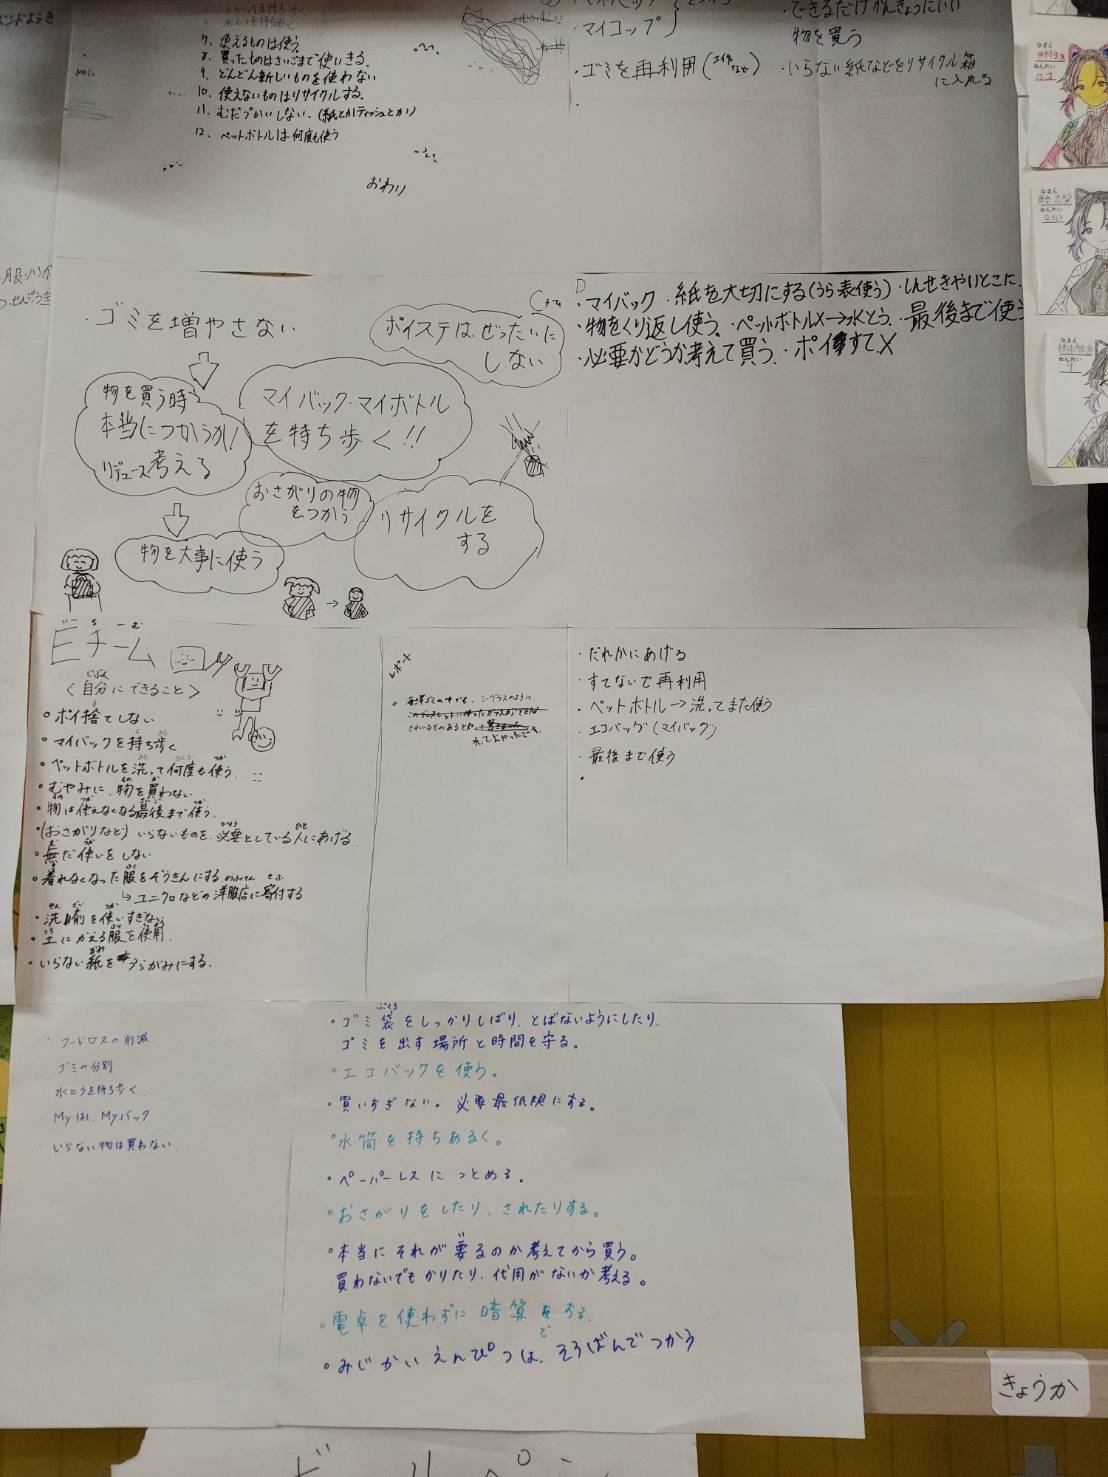 7、使えるものは使う。
8、買ったものはさいごまで使いきる。
9、どんどん新しいものを使わない
10、使えないものはリサイクルする。
11、むだづかいしない。(紙とかティッシュとか)
12、ペットボトルは何度も使う
おわり
・マイコップ
・ゴミを再利用(工作など)
・できるだけかんきょうにいい
物を買う
・いらない紙などをリサイクル箱
に入れる
・ゴミを増やさない
ポイステは、ぜったいに
しない
物を買う時
本当につかうか!
リデュース考える
マイバック・マイボトル
を持ち歩く!!
おさがりの物
をつかう
リサイクルを
する
物を大事に使う
D
・マイバック ・紙を大切にする(うら表使う) ・しんせきやいとこに
・物をくり返し使う。・ペットボトルX→水とう。・最後まで使う
・必要かどうか考えて買う。・ポイすてX
びちーむ
Eチーム
<自分にできること>
・ポイ捨てしない
・マイバックを持ち歩く
・ペットボトルを洗って何度も使う。
・むやみに、物を買わない
・物は使えなくなる最後まで使う。
・(おさがりなど)いらないものを、必要としている人にあげる
・無だ使いをしない
・着れなくなった服をぞうきんにする。
↳ユニクロなどの洋服店に寄付する
・洗剤を使いすぎない
・土にかえる服を使用。
・いらない紙をうらがみにする。
レポート
・だれかにあげる
・すてないで再利用
・ペットボトル→洗ってまた使う
・エコバッグ(マイバッグ)
・最後まで使う
・フードロスの削減
・ゴミの分別
・水とうを持ち歩く
・Myはし、Myバック
・いらない物は買わない。
・ゴミ袋をしっかりしばり、とばないようにしたり、
ゴミを出す場所と時間を守る。
・エコバックを使う。
・買いすぎない。必要最低限にする。
・水筒を持ちあるく。
・ペーパーレスにつとめる。
・おさがりをしたり、されたりする。
・本当にそれが要るのか考えてから買う。
買わないでもかりたり、代用がないか考える。
・電卓を使わずに暗算をする。
・みじかいえんぴつは、そろばんでつかう
きょうか